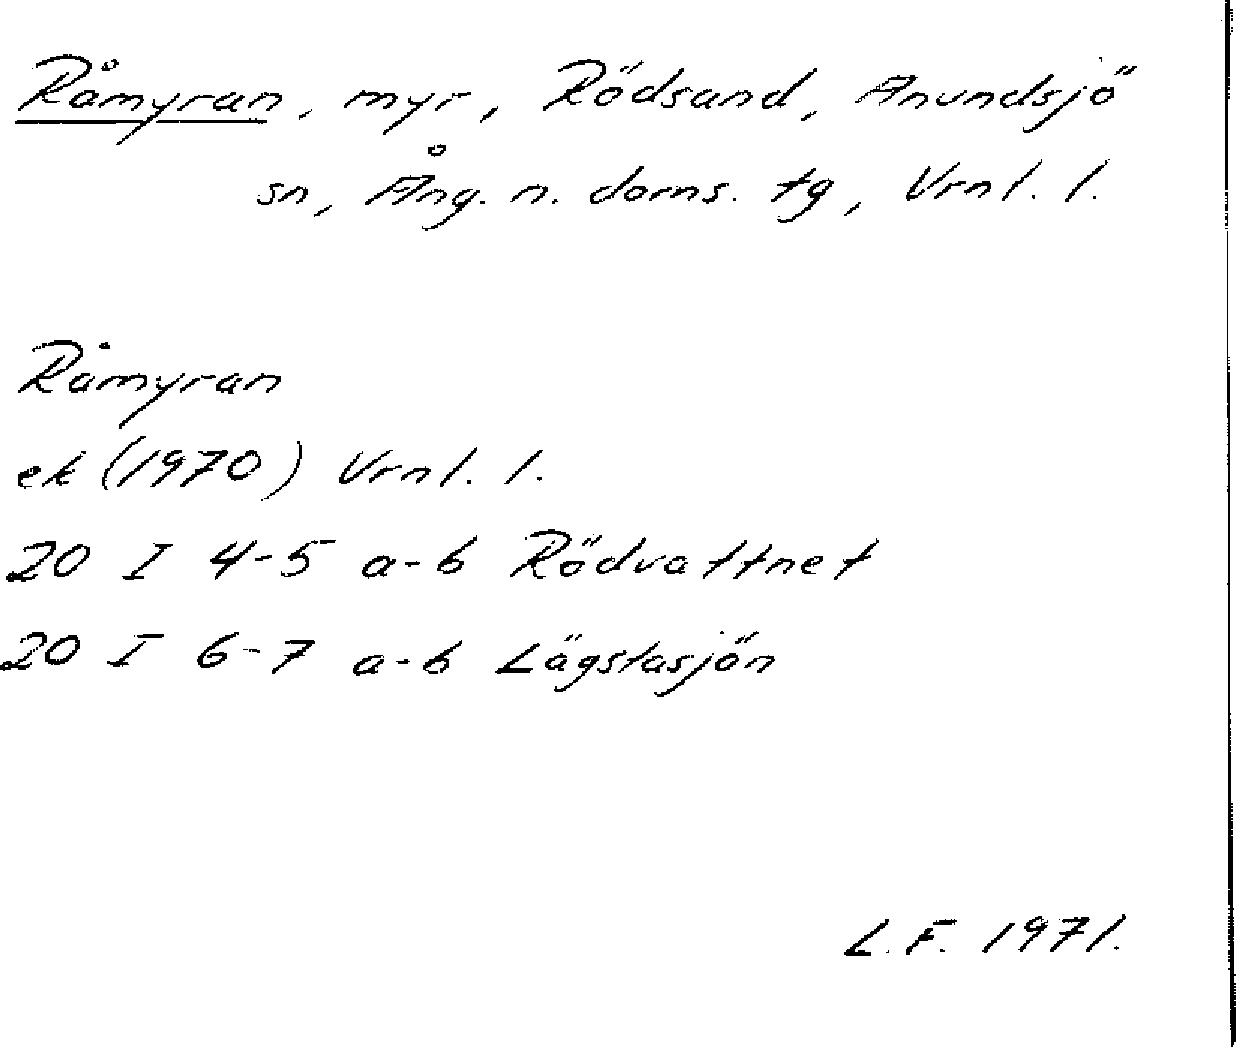 Råmyran, myr, Rödsand, Anundsjö
sn, Ång. n. doms. tg, Vrnl. l.
Råmyran
ek (1970) Vrnl. l.
20 I 4-5 a-b Rödvattnet
20 I 6-7 a-b Lägstasjön
L.F. 1971.